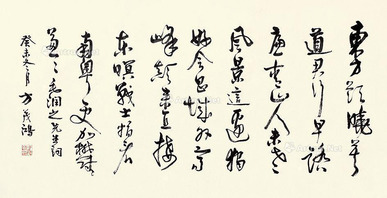 東方欲曉莫
道君行早踏
遍青山人未老
風景這邊獨
好会昌城外高
峰颠連直接
东溟戰士指看
南粤更加郁郁
葱々毛润之先生词
癸未冬月方茂鴻